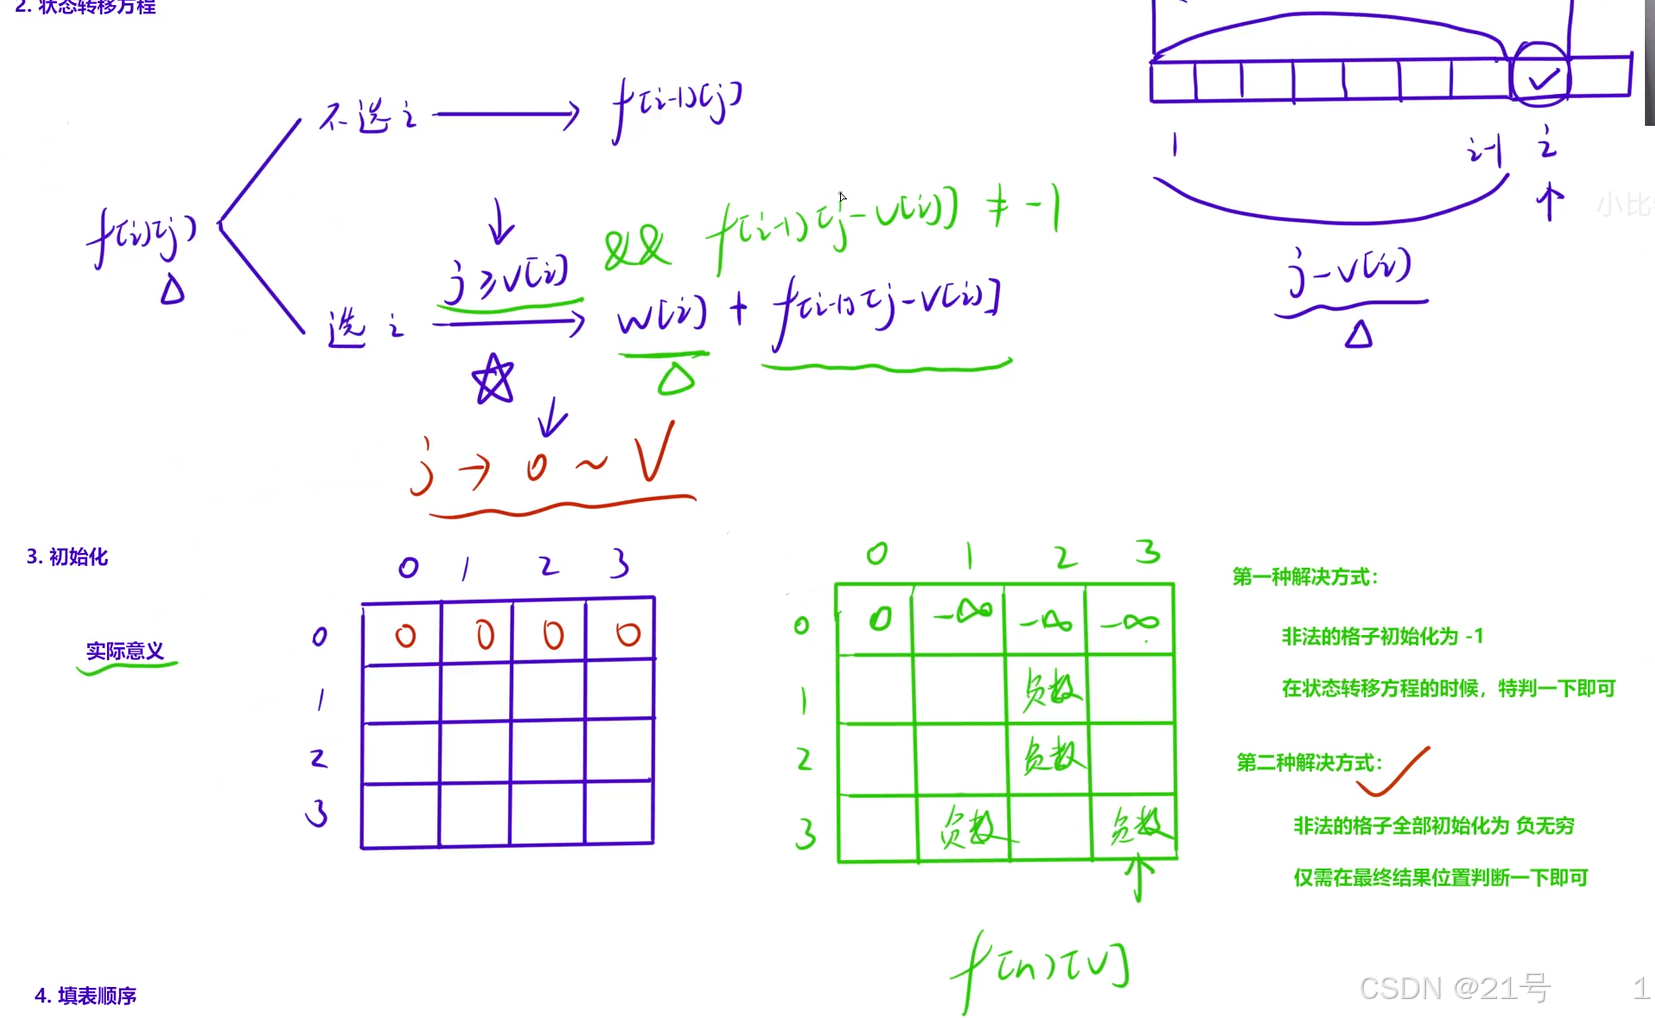 2. 状态转移方程
不选 i → f[i-1][j]
f[i][j]
j ≥ v[i] && f[i-1][j-v[i]] ≠ -1
选 i → w[i] + f[i-1][j-v[i]]
j → 0 ~ V
1 i-1 i
j-v[i]
3. 初始化
实际意义
0 1 2 3
0 0 0 0 0
1
2
3
0 1 2 3
0 0 -∞ -∞ -∞
1 负数
2 负数
3 负数 负数
f[n][V]
第一种解决方式：
非法的格子初始化为 -1
在状态转移方程的时候，特判一下即可
第二种解决方式：
非法的格子全部初始化为 负无穷
仅需在最终结果位置判断一下即可
4. 填表顺序
CSDN @21号
1